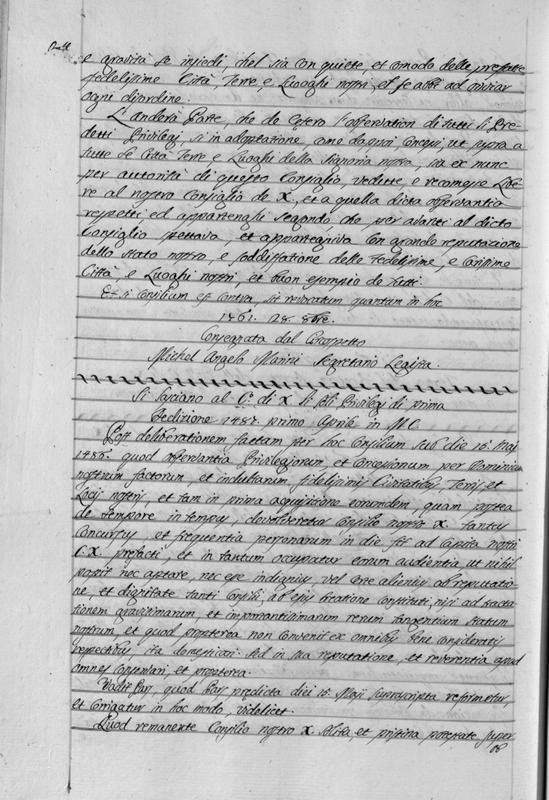 e gravità se injedi, chel sia con quiete, et comodo delle prefatte
fedelissime Città, Terre, e Luoghi nostri, et se abbi ad oviar
ogni disordine.
L'anderà Parte, che de cetero l'osservation di tutti li Pre-
detti Privilegj, si in adoptatione, come dapoi concessi, ut supra a
tutte le Città Terre e Luoghi della Signoria nostra, sia ex nunc
per autorità di questo Consiglio, vedutte, e recomesse Libe-
re al nostro Consiglio de X, et a quella dicta osservantia
respetti ed appartenghi segondo, che per avanti al dicto
Consiglio spettava, et apparteniva con grande reputazione
dello stato nostro, e soddisfatione delle Fedelissime, e Carissime
Città e Luoghi nostri, et buon esempio de tutti.
Et si Consilium est contra, sit revocatum quantum in hoc
28. 8bre.
Consegnata dal Conspetto
Michel Angelo Marini Segretario Legista.
Si lasciano al C.º di X li soli Privilegj di prima
Dedizione 1487. primo Aprile in M.C.
Post deliberationem factam per hoc Consilium sub die 15. Maij
1486. quod observantia Privilegiorum, et Concessionum per Dominium
nostrum factorum, et indultarum fidelissimis Civitatibus, Terris, et
Locis nostris, et tam in prima acquisitione eorundem, quam postea
de tempore in tempus, devolveretur Consilio nostro X. tantus
Concursus, et frequentia personarum in die fit ad Capita nostri
C. X. prefacti, et in tantum occupatur eorum audientia ut nihil
possit nec aptare, nec esse indignius, vel esse alienius ab reputatio-
ne, et dignitate tanti Consilij, ab ejus creatione constituti, nisi ad tracta-
tionem gravissimarum, et importantissimarum rerum tangentium statum
nostrum, et quod propterea non convenit ex omnibus bene consideratis
respectibus ita domesticari. sed in sua reputatione, et reverentia apud
omnes conservari, et propterea
Vadit Pars, quod Pars predicta diei 15. Maij suprascripta reformetur,
et Corrigatur in hoc modo, videlicet.
Quod remanente Consilio nostro X. solita, et pristina potestate super